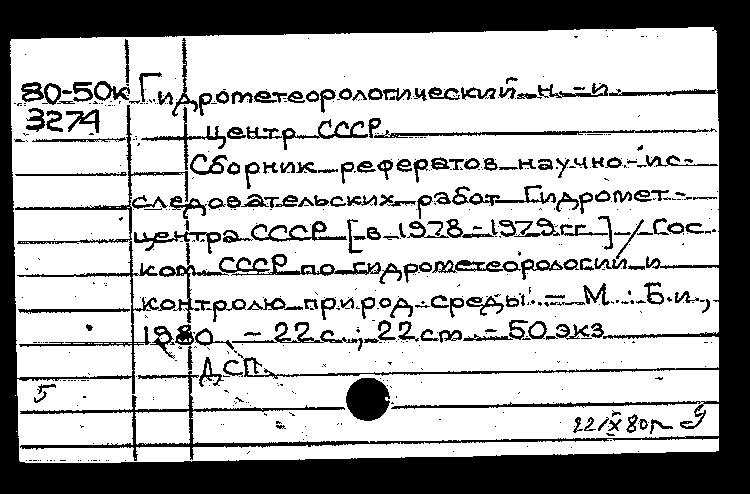 80-50к Гидрометеорологический н.-и.
3274 центр СССР.
Сборник рефератов научно-ис-
следовательских работ Гидромет-
центра СССР [в 1978-1979 гг.] / Гос.
ком. СССР по гидрометеорологии и
контролю природ. среды. - М.: Б.и.,
1980. - 22 с.; 22 см. - 50 экз.
ДСП.
5
22/IX 80г.